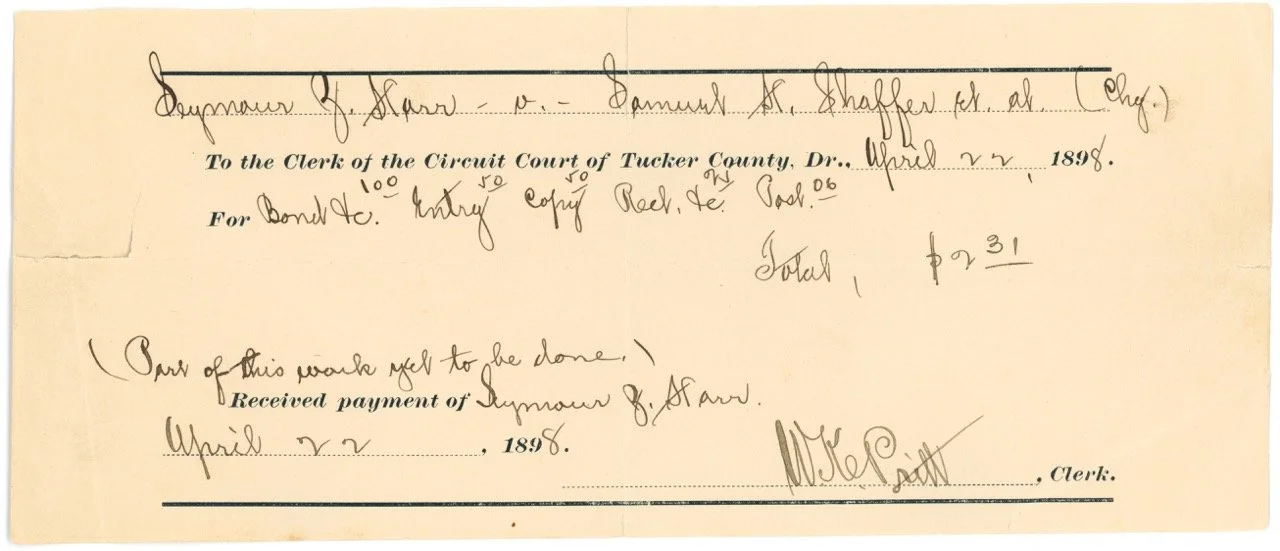 Seymour Z. Starr - v. - Samuel H. Shaffer et. al. (Chy.)
To the Clerk of the Circuit Court of Tucker County, Dr., April 22, 1898.
For Bond &c. 1 00 Entry 50 Copy 50 Rect. &c. 25 Post. 06
Total, $2 31
(Part of this work yet to be done.)
Received payment of Seymour Z. Starr.
April 22, 1898.
W. K. Pritt, Clerk.